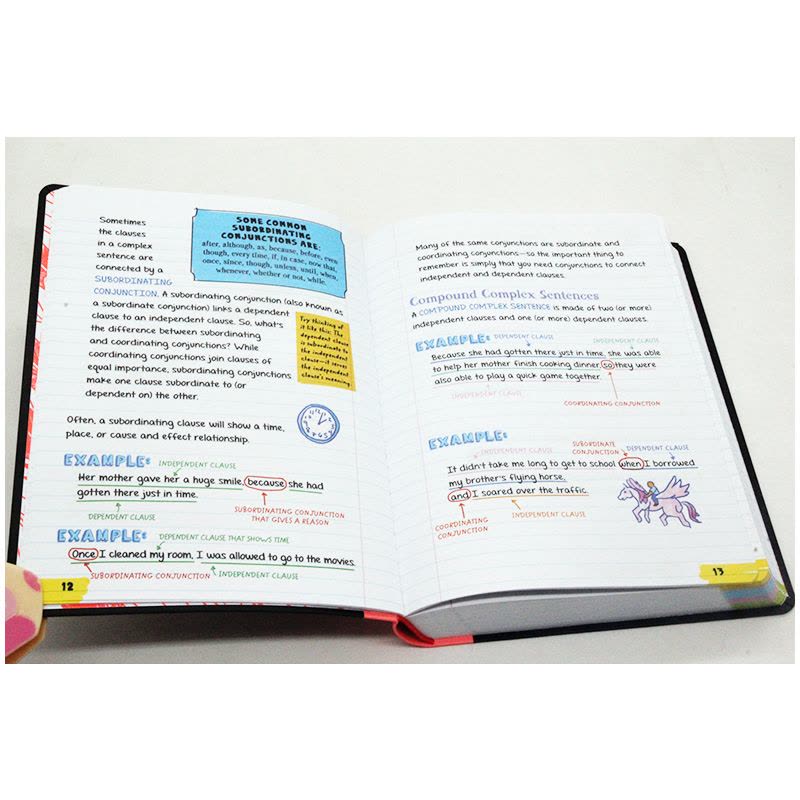 Sometimes
the clauses
in a complex
sentence are
connected by a
SUBORDINATING
CONJUNCTION. A subordinating conjunction (also known as
a subordinate conjunction) links a dependent
clause to an independent clause. So, what's
the difference between subordinating
and coordinating conjunctions? While
coordinating conjunctions join clauses of
equal importance, subordinating conjunctions
make one clause subordinate to (or
dependent on) the other.
SOME COMMON
SUBORDINATING
CONJUNCTIONS ARE:
after, although, as, because, before, even
though, every time, if, in case, now that,
once, since, though, unless, until, when,
whenever, whether or not, while.
Try thinking of
it like this: The
dependent clause
is subordinate to
the independent
clause—it serves
the independent
clause's meaning.
Often, a subordinating clause will show a time,
place, or cause and effect relationship.
EXAMPLE: INDEPENDENT CLAUSE
Her mother gave her a huge smile, because she had
gotten there just in time.
DEPENDENT CLAUSE
SUBORDINATING CONJUNCTION
THAT GIVES A REASON
EXAMPLE: DEPENDENT CLAUSE THAT SHOWS TIME
Once I cleaned my room, I was allowed to go to the movies.
SUBORDINATING CONJUNCTION INDEPENDENT CLAUSE
12
Many of the same conjunctions are subordinate and
coordinating conjunctions—so the important thing to
remember is simply that you need conjunctions to connect
independent and dependent clauses.
Compound Complex Sentences
A COMPOUND COMPLEX SENTENCE is made of two (or more)
independent clauses and one (or more) dependent clauses.
EXAMPLE: DEPENDENT CLAUSE INDEPENDENT CLAUSE
Because she had gotten there just in time, she was able
to help her mother finish cooking dinner, so they were
also able to play a quick game together.
INDEPENDENT CLAUSE
COORDINATING CONJUNCTION
EXAMPLE: INDEPENDENT CLAUSE SUBORDINATE
CONJUNCTION DEPENDENT CLAUSE
It didn't take me long to get to school when I borrowed
my brother's flying horse,
and I soared over the traffic.
COORDINATING
CONJUNCTION
INDEPENDENT CLAUSE
13